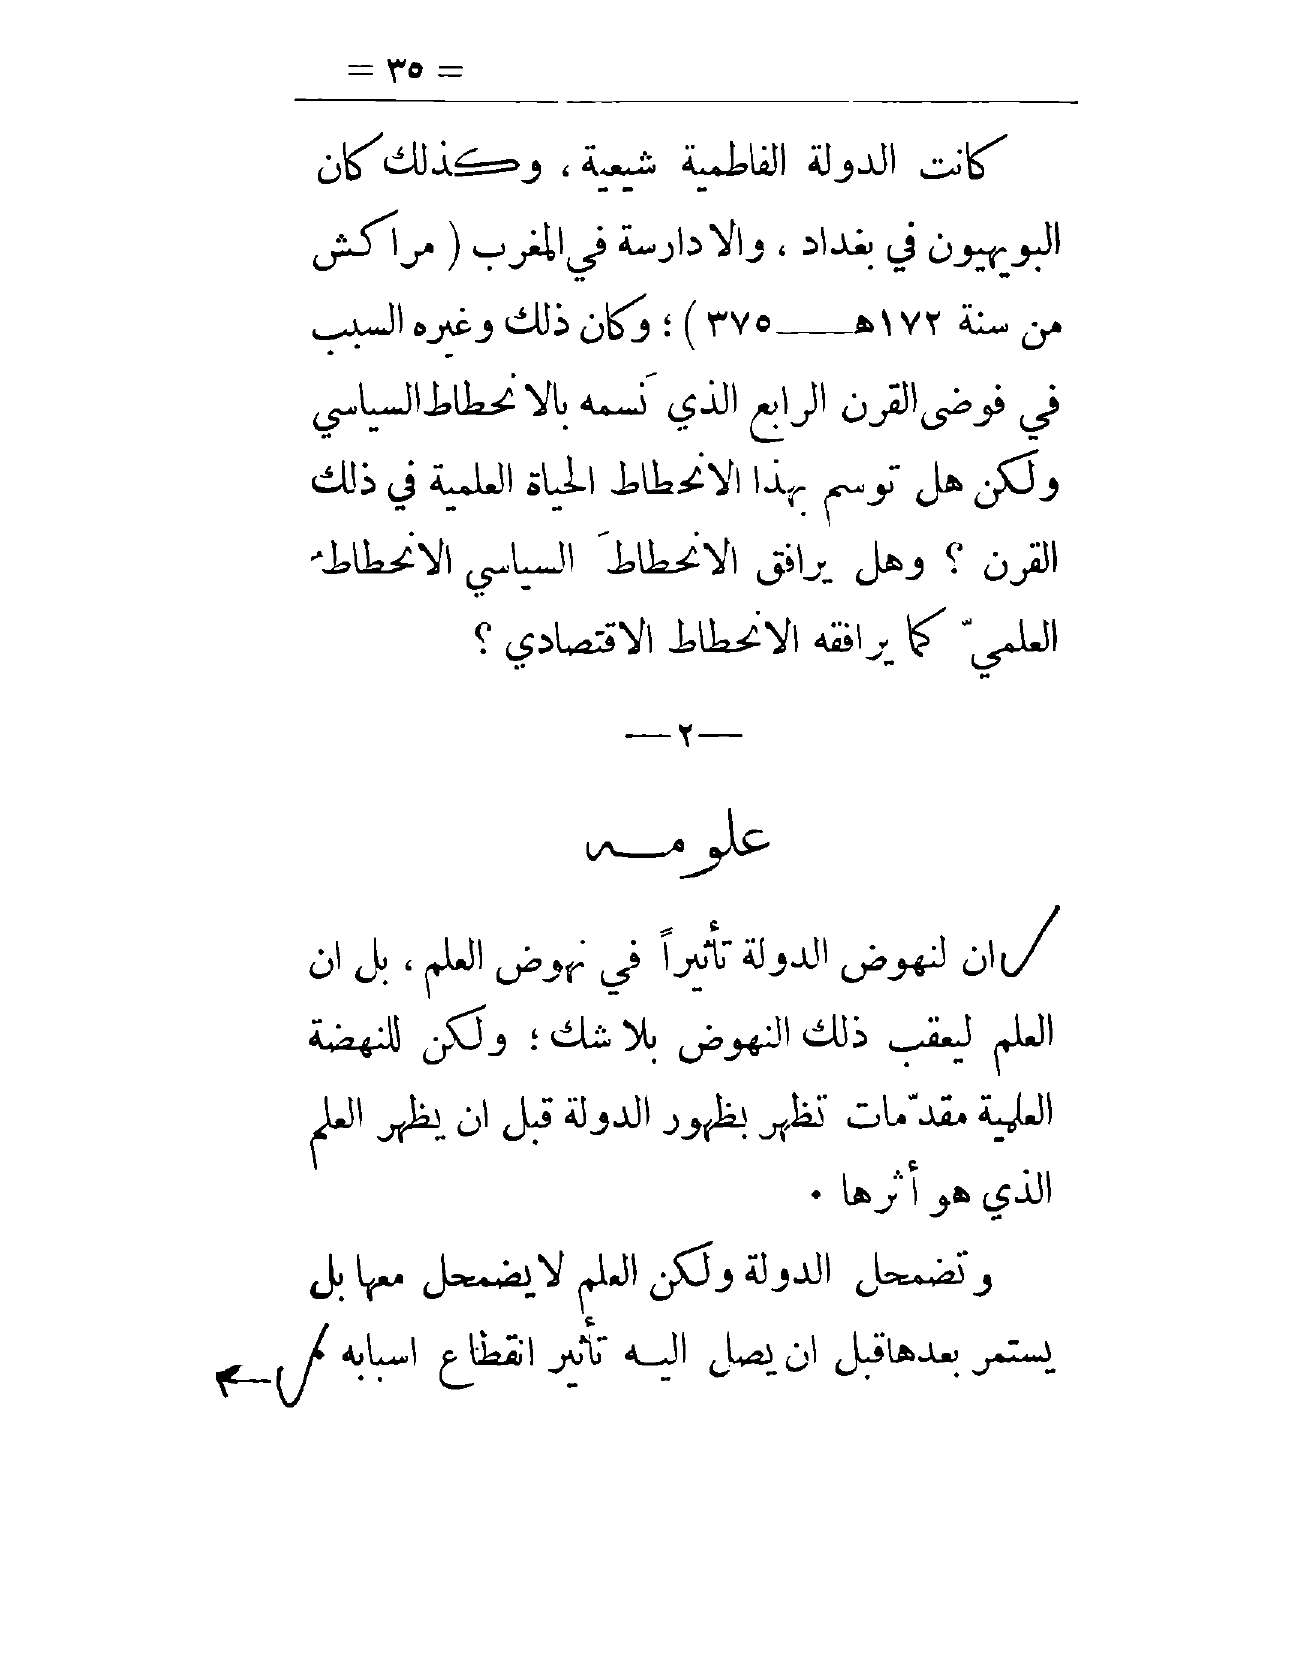 = ٣٥ =
كانت الدولة الفاطمية شيعية ، وكذلك كان
البويهيون في بغداد ، والادارسة في المغرب ( مراكش
من سنة ١٧٢ھ — ٣٧٥ ) ؛ وكان ذلك وغيره السبب
في فوضى القرن الرابع الذي نَسمه بالانحطاط السياسي
ولكن هل توسم بهذا الانحطاط الحياة العلمية في ذلك
القرن ؟ وهل يرافق الانحطاطَ السياسي الانحطاطُ
العلميّ كما يرافقه الانحطاط الاقتصادي ؟
—٢—
علومه
ان لنهوض الدولة تأثيراً في نهوض العلم ، بل ان
العلم ليعقب ذلك النهوض بلا شك ؛ ولكن للنهضة
العلمية مقدّمات تظهر بظهور الدولة قبل ان يظهر العلم
الذي هو أثرها .
وتضمحل الدولة ولكن العلم لا يضمحل معها بل
يستمر بعدها قبل ان يصل اليه تأثير انقطاع اسبابه .